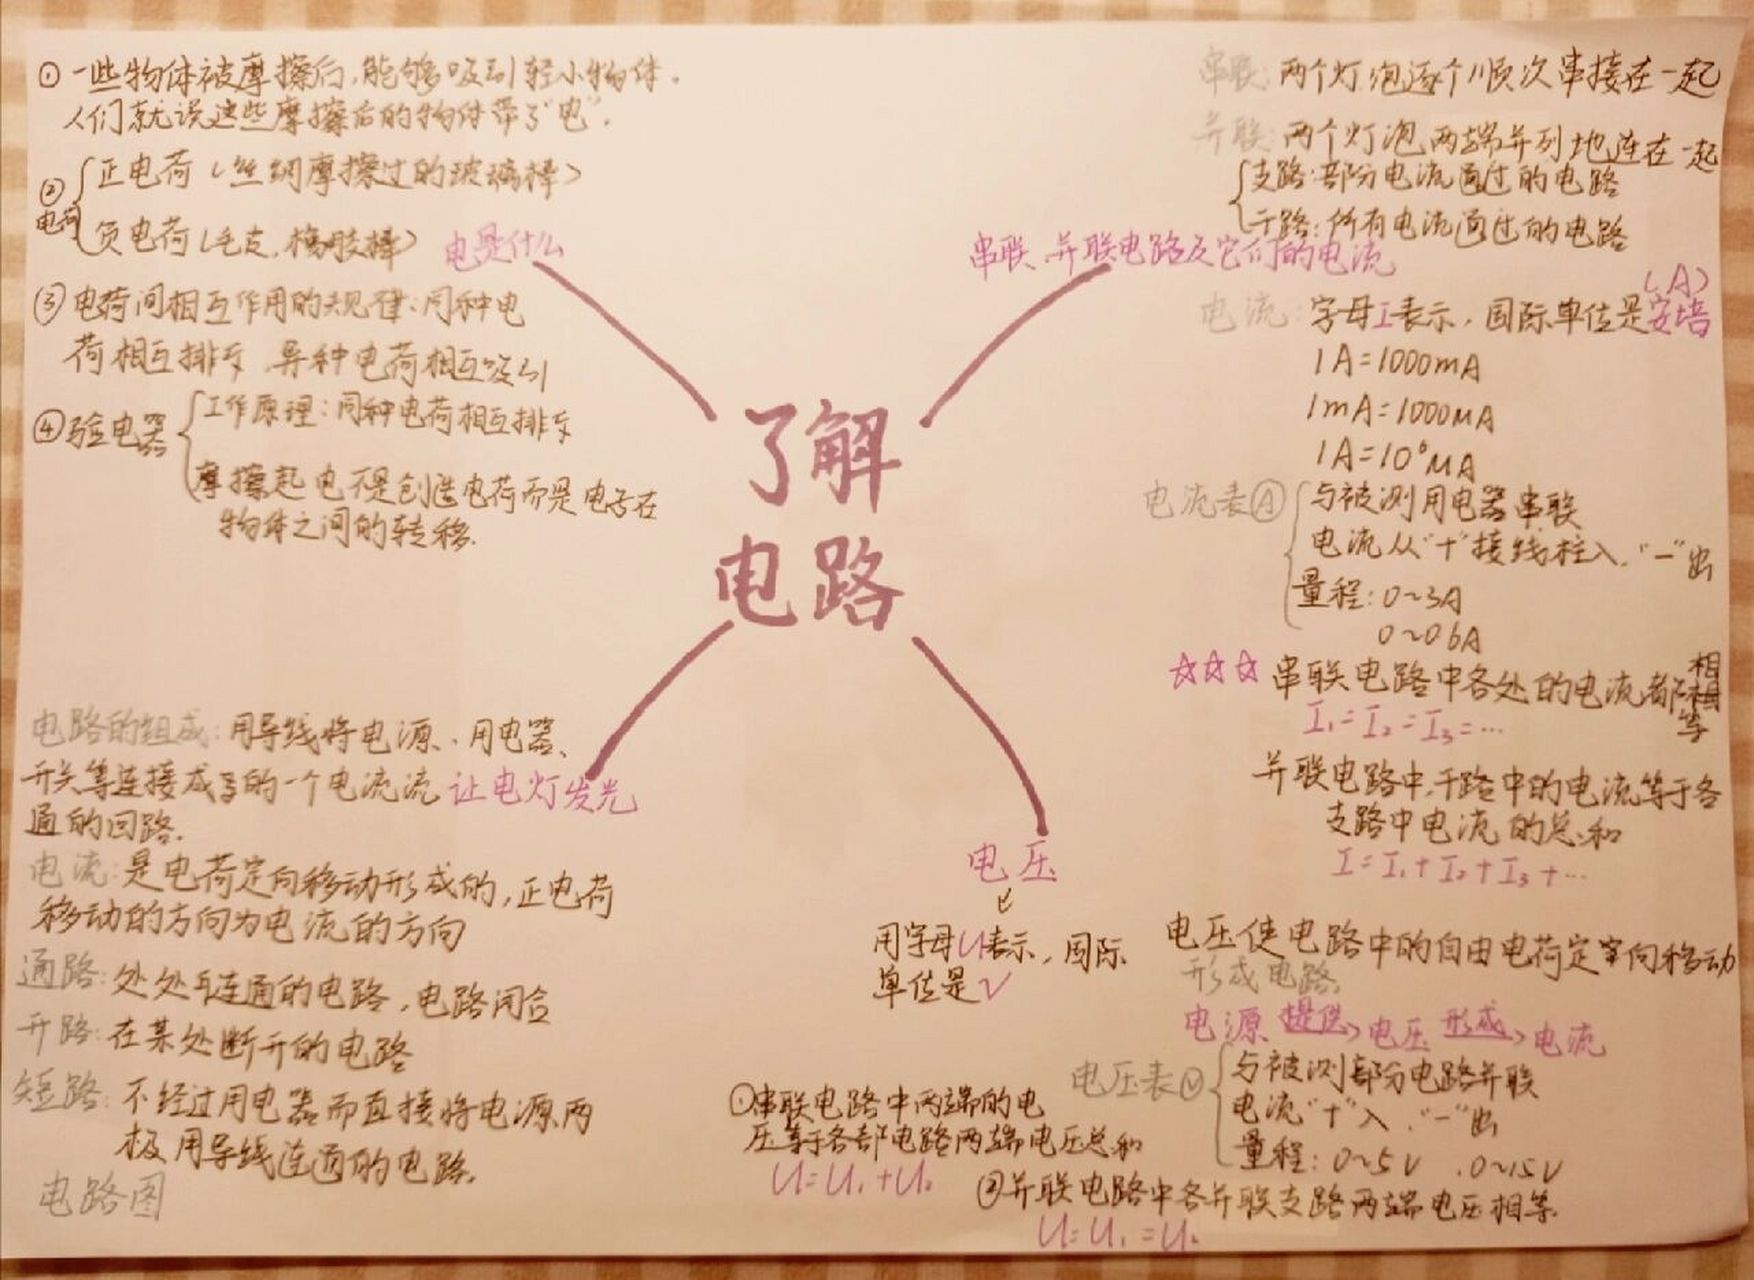 了解
电路
电是什么
①一些物体被摩擦后,能够吸引轻小物体.
人们就说这些摩擦后的物体带了"电".
②电荷
正电荷(丝绸摩擦过的玻璃棒)
负电荷(毛皮,橡胶棒)
③电荷间相互作用的规律:同种电
荷相互排斥,异种电荷相互吸引
④验电器
工作原理:同种电荷相互排斥
摩擦起电不是创造电荷而是电子在
物体之间的转移.
串联、并联电路及它们的电流
串联:两个灯泡逐个顺次串接在一起
并联:两个灯泡两端并列地连在一起
支路:部分电流通过的电路
干路:所有电流通过的电路
(A)
电流:字母I表示,国际单位是安培
1A=1000mA
1mA=1000μA
1A=10⁶μA
电流表Ⓐ
与被测用电器串联
电流从"+"接线柱入,"-"出
量程:0~3A
0~0.6A
☆☆☆串联电路中各处的电流都相等
I₁=I₂=I₃=…
并联电路中,干路中的电流等于各
支路中电流的总和
I=I₁+I₂+I₃+…
让电灯发光
电路的组成:用导线将电源、用电器、
开关等连接成的一个电流流
通的回路.
电流:是电荷定向移动形成的,正电荷
移动的方向为电流的方向
通路:处处连通的电路,电路闭合
开路:在某处断开的电路
短路:不经过用电器而直接将电源两
极用导线连通的电路.
电路图
电压
用字母U表示,国际
单位是V
电压使电路中的自由电荷定向移动
形成电路.
电源 提供→电压 形成→电流
电压表Ⓥ
与被测部分电路并联
电流"+"入,"-"出
量程:0~5V .0~15V
①串联电路中两端的电
压等于各部电路两端电压总和
U=U₁+U₂
②并联电路中各并联支路两端电压相等.
U=U₁=U₂